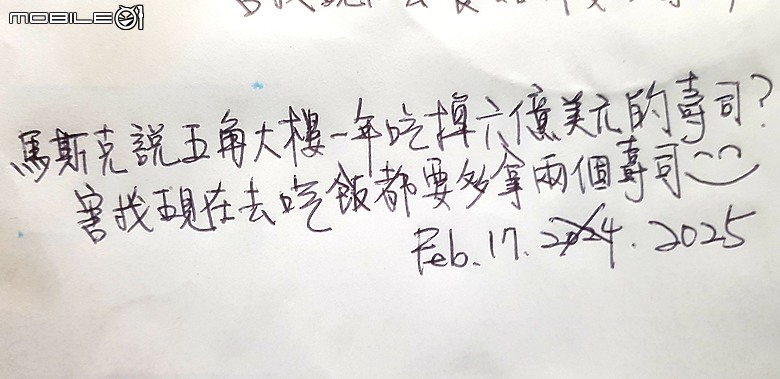 MOBILE01
馬斯克說五角大樓一年吃掉六億美元的壽司?
害我現在去吃飯都要多拿兩個壽司
Feb. 17. 2024. 2025